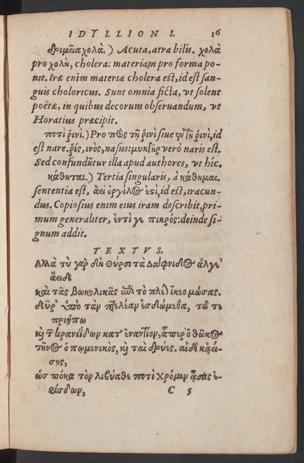 IDYLLION I. 16
δριμεῖα χολά.) Acuta, atra bilis. χολὰ
pro χολὴ, cholera: materiam pro forma po-
nit. Iræ enim materia cholera est, id est san-
guis choloricus. Sunt omnia ficta, vt solent
poëtæ, in quibus decorum obseruandum, vt
Horatius præcipit.
ποτὶ ῥινί.) Pro πρὸς τῇ ῥινὶ siue ἐν τῇ ῥινὶ, id
est nare. ῥὶς, ινὸς, nasus: μυκτὴρ verò naris est.
Sed confunduntur illa apud authores, vt hîc.
κάθηται.) Tertia singularis, à κάθημαι.
sententia est, ἀεὶ ὀργίλος ἐστὶ, id est, iracun-
dus. Copiosius enim eius iram describit, pri-
mum generaliter, ἐντί γε πικρός: deinde si-
gnum addit.
TEXTVS.
Ἀλλὰ τὺ γὰρ δὴ Θύρσι τὰ Δάφνιδος ἄλγε'
ἄειδες
καὶ τᾶς Βωκολικᾶς ἐπὶ τὸ πλέον ἵκεο μώσας.
δεῦρ' ὑπὸ τὰν πτελέαν ἑσδώμεθα, τῶ τε
πριήπω
καὶ τᾶν κρανιάδων κατ' ἐναντίον, ἅπερ ὁ θῶκος
τῆνος ὁ ποιμενικὸς, καὶ ταὶ δρύες. αἰ δέ κ' ἀεί-
σῃς,
ὡς πόκα τὸν λιβύαθε ποτὶ Χρόμιν ᾆσας ἐ-
ρίσδων,
C 5